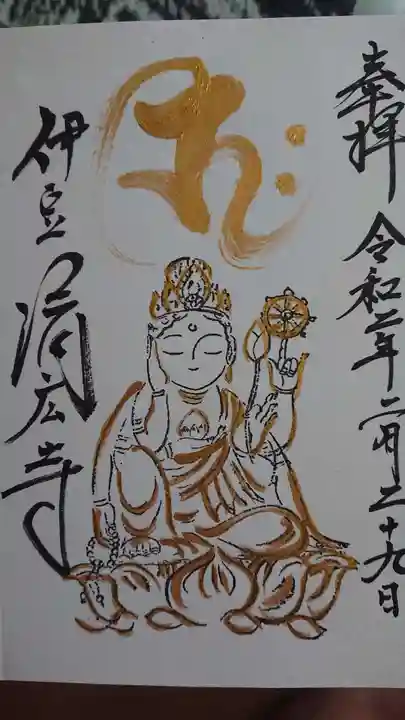 奉拝 令和二年二月二十九日
𑖮𑖿𑖨𑖱𑖾
伊豆 清広寺